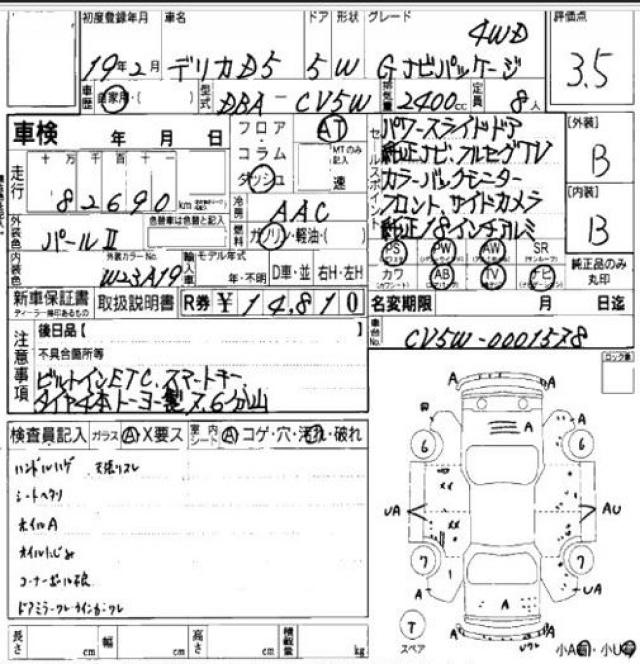 初度登録年月 車名 ドア 形状 グレード 評価点
4WD
19年2月 デリカD5 5 W Gナビパッケージ 3.5
車歴 自家用・( ) 型式 DBA-CV5W 排気量 2400cc 定員 8人
車検 年 月 日
フロア AT
コラム MTのみ記入
ダッシュ 速
セールスポイント
パワースライドドア
純正ナビ、フルセグTV
カラーバックモニター
フロント、サイドカメラ
純正18インチアルミ
[外装] B
[内装] B
走行 十 万 千 百 十 一
82690 km
冷房 AAC
外装色 パールⅡ 色替車は色替と記入
燃料 ガソリン・軽油・( )
内装色 外装カラーNo. W23A19
輸入車 モデル年式 年・不明 D車・並 右H・左H
PS PW AW SR (サンルーフ)
カワ AB TV ナビ
純正品のみ丸印
新車保証書 取扱説明書 R券 ¥14,810
ディーラー捺印あるもの
名変期限 月 日迄
車台No. CV5W-0001578
注意事項
後日品【
不具合箇所等
ビルトインETC、スマートキー
タイヤ4本トーヨー製7.6分山
ロック番
検査員記入 ガラス A・X要ス 室内シート A コゲ・穴・汚れ・破れ
ハンドルハゲ
シートヘタリ
ホイルA
オイルにじみ
A A
A
6 6
UA AU
7 7
A UA
A
T
スペア
A A
小A 小U
長さ cm 幅 cm 高さ cm 積載量 kg